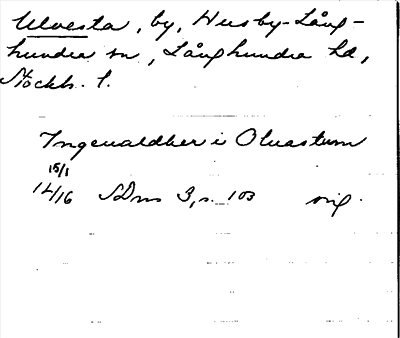 Ulvesta, by, Husby-Lång-
hundra sn, Långhundra hd,
Stockh. l.
Ingeualdher i Oluastum
15/1
1416 SDns 3, s. 103 orig.